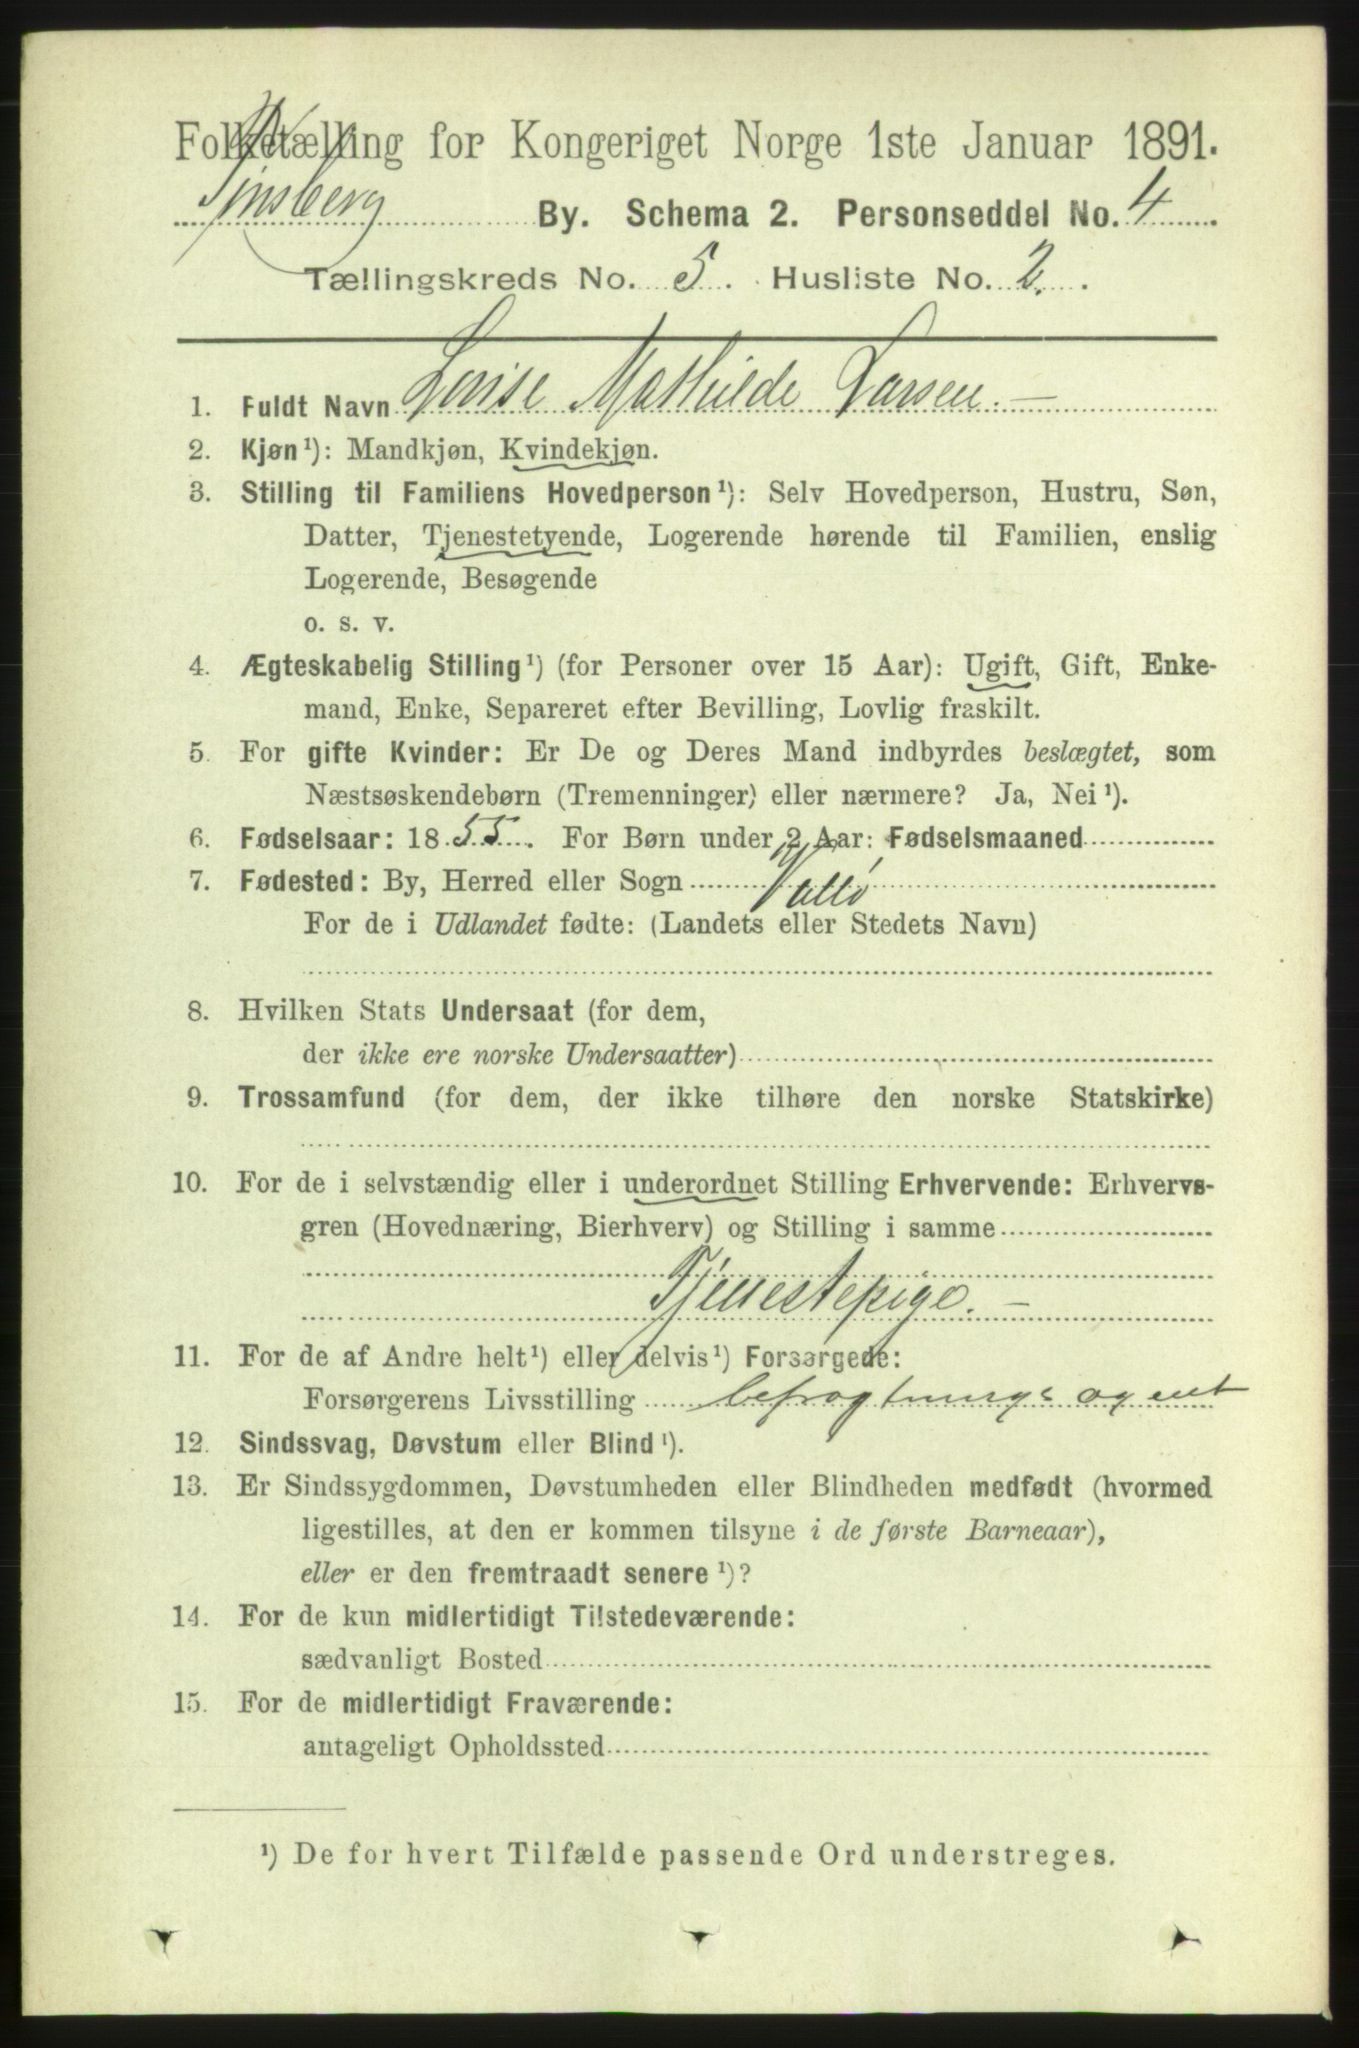 Folketælling for Kongeriget Norge 1ste Januar 1891.
Tønsberg By. Schema 2. Personseddel No. 4
Tællingskreds No. 5. Husliste No. 2.
1. Fuldt Navn Lovise Mathilde Larsen. —
2. Kjøn¹): Mandkjøn, Kvindekjøn.
3. Stilling til Familiens Hovedperson¹): Selv Hovedperson, Hustru, Søn,
Datter, Tjenestetyende, Logerende hørende til Familien, enslig
Logerende, Besøgende
o. s. v.
4. Ægteskabelig Stilling¹) (for Personer over 15 Aar): Ugift, Gift, Enke-
mand, Enke, Separeret efter Bevilling, Lovlig fraskilt.
5. For gifte Kvinder: Er De og Deres Mand indbyrdes beslægtet, som
Næstsøskendebørn (Tremenninger) eller nærmere? Ja, Nei¹).
6. Fødselsaar: 1855. For Børn under 2 Aar: Fødselsmaaned
7. Fødested: By, Herred eller Sogn Vallø
For de i Udlandet fødte: (Landets eller Stedets Navn)
8. Hvilken Stats Undersaat (for dem,
der ikke ere norske Undersaatter)
9. Trossamfund (for dem, der ikke tilhøre den norske Statskirke)
10. For de i selvstændig eller i underordnet Stilling Erhvervende: Erhvervs-
gren (Hovednæring, Bierhverv) og Stilling i samme
Tjenestepige. —
11. For de af Andre helt¹) eller delvis¹) Forsørgede:
Forsørgerens Livsstilling befragtnings agent
12. Sindssvag, Døvstum eller Blind¹).
13. Er Sindssygdommen, Døvstumheden eller Blindheden medfødt (hvormed
ligestilles, at den er kommen tilsyne i de første Barneaar),
eller er den fremtraadt senere¹)?
14. For de kun midlertidigt Tilstedeværende:
sædvanligt Bosted
15. For de midlertidigt Fraværende:
antageligt Opholdssted
¹) De for hvert Tilfælde passende Ord understreges.